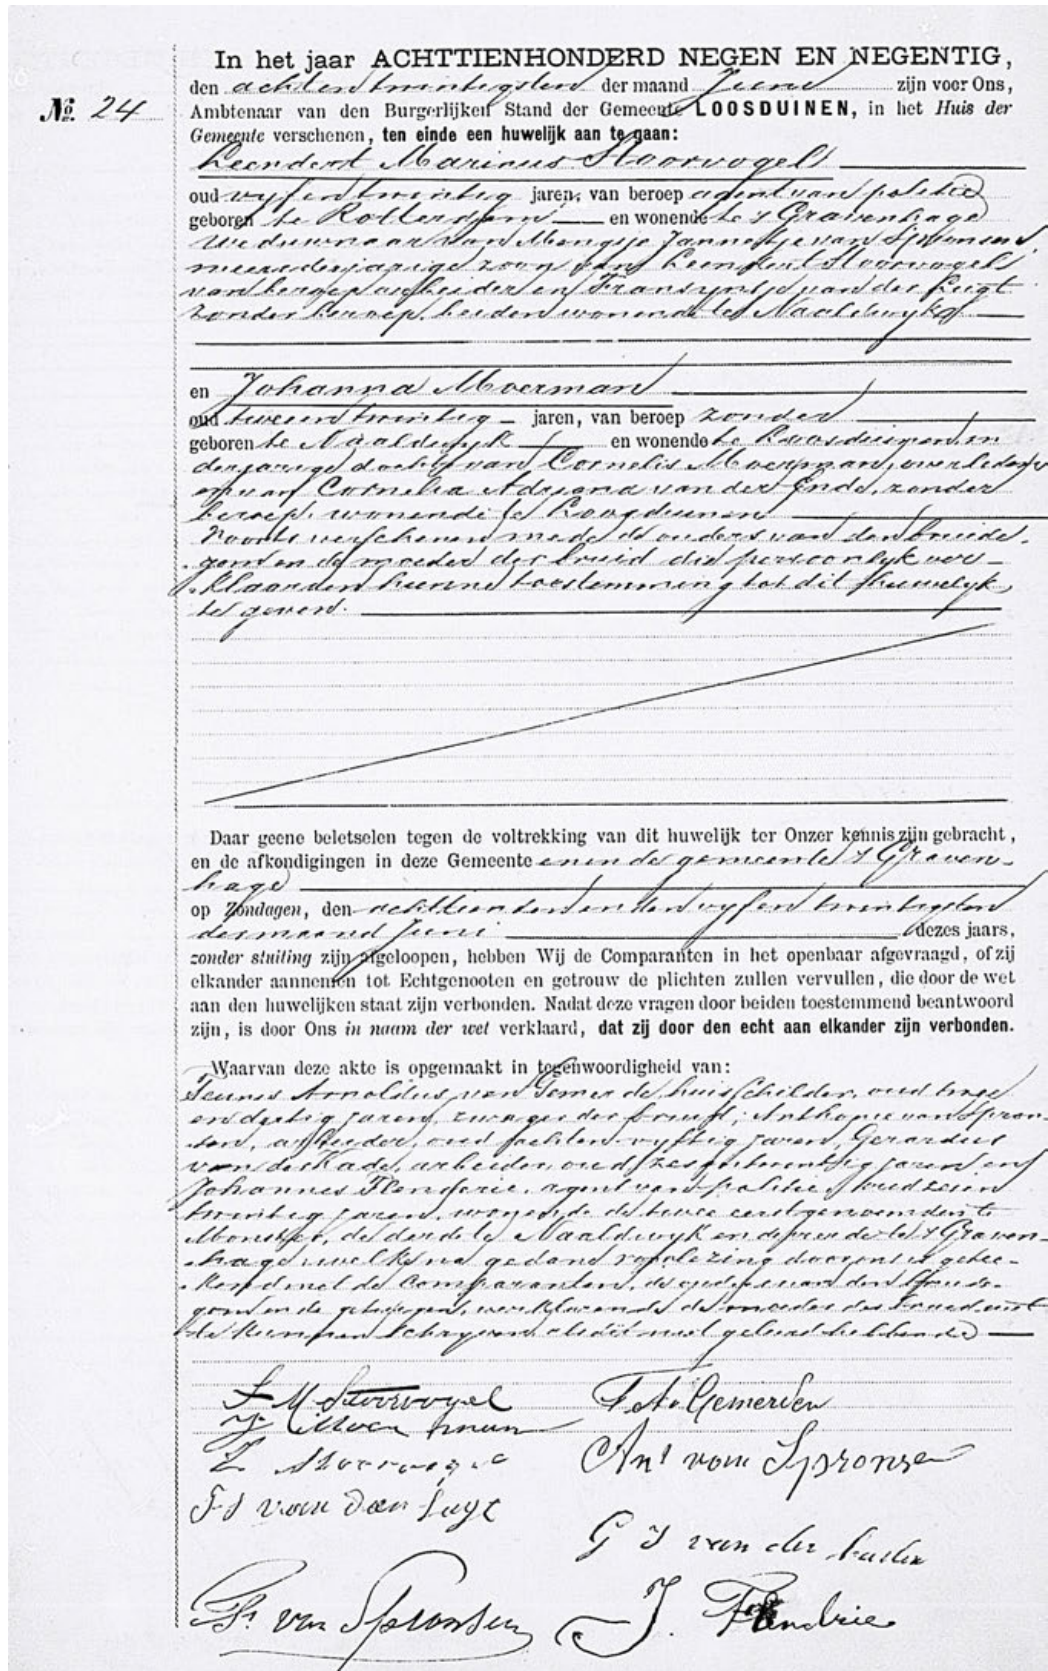 In het jaar ACHTTIENHONDERD NEGEN EN NEGENTIG,
den achtentwintigsten der maand Juni zijn voor Ons,
No. 24
Ambtenaar van den Burgerlijken Stand der Gemeente LOOSDUINEN, in het Huis der
Gemeente verschenen, ten einde een huwelijk aan te gaan:
Leendert Marinus Stoorvogel
oud vyfentwintig jaren, van beroep agent van politie
geboren te Rotterdam en wonende te 's Gravenhage
weduwnaar van Mengsje Jannetje van Spronsen,
meerderjarige zoon van Leendert Stoorvogel
van beroep arbeider en Fransyntje van der Lugt
zonder beroep, beiden wonende te Naaldwyk
en Johanna Moerman
oud tweeentwintig jaren, van beroep zonder
geboren te Naaldwyk en wonende te Loosduinen, min
derjarige dochter van Cornelis Moerman, overleden
en van Cornelia Adriana van der Ende, zonder
beroep, wonende te Loosduinen
Voorts verschenen mede de ouders van den bruide-
gom en de moeder der bruid die persoonlyk ver-
klaarden hunne toestemming tot dit huwelyk
te geven.
Daar geene beletselen tegen de voltrekking van dit huwelijk ter Onzer kennis zijn gebracht,
en de afkondigingen in deze Gemeente en in de gemeente 's Graven-
hage
op Zondagen, den achttienden en den vyfentwintigsten
der maand Juni dezes jaars,
zonder stuiting zijn afgeloopen, hebben Wij de Comparanten in het openbaar afgevraagd, of zij
elkander aannemen tot Echtgenooten en getrouw de plichten zullen vervullen, die door de wet
aan den huwelijken staat zijn verbonden. Nadat deze vragen door beiden toestemmend beantwoord
zijn, is door Ons in naam der wet verklaard, dat zij door den echt aan elkander zijn verbonden.
Waarvan deze akte is opgemaakt in tegenwoordigheid van:
Teunis Arnoldus van Gemerde, huisschilder, oud twee
en dertig jaren, zwager der bruid; Anthonie van Spron-
sen, arbeider, oud vyftig jaren, Gerardus
van der Kade, arbeider, oud zesentwintig jaren en
Johannes Flenderie, agent van politie, oud zeven
twintig jaren, wonende de twee eerstgenoemden te
Monster, de derde te Naaldwyk en de vierde te 's Graven-
hage, welke na gedane voorlezing door ons is getee-
kend met de Comparanten, de ouders van den bruide-
gom en de getuigen, verklarende de moeder der bruid niet
te kunnen schryven als dit niet geleerd hebbende
L M Stoorvogel T. A. v. Gemerden
J. Moerman
L Stoorvogel Ant van Spronsen
F J van der Lugt
G J van der
Th. van Spronsen J. Flendrie